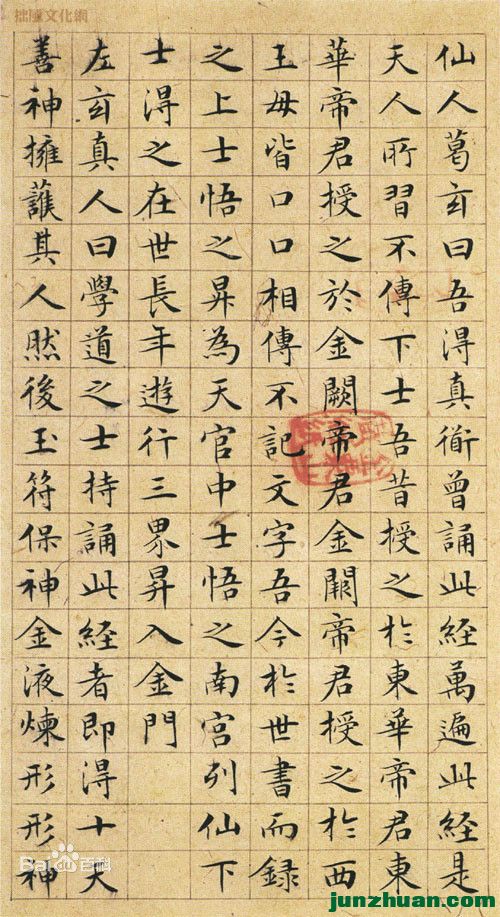 拙風文化網
仙人葛玄曰吾淂真衜曾誦此經萬遍此經是
天人所習不傳下士吾昔授之於東華帝君東
華帝君授之於金闕帝君金闕帝君授之於西
王母皆口口相傳不記文字吾今於世書而錄
之上士悟之昇為天官中士悟之南宮列仙下
士淂之在世長年遊行三界昇入金門
左玄真人曰學道之士持誦此経者即淂十天
善神擁護其人然後玉符保神金液煉形形神
Bai百科
junzhuan.com